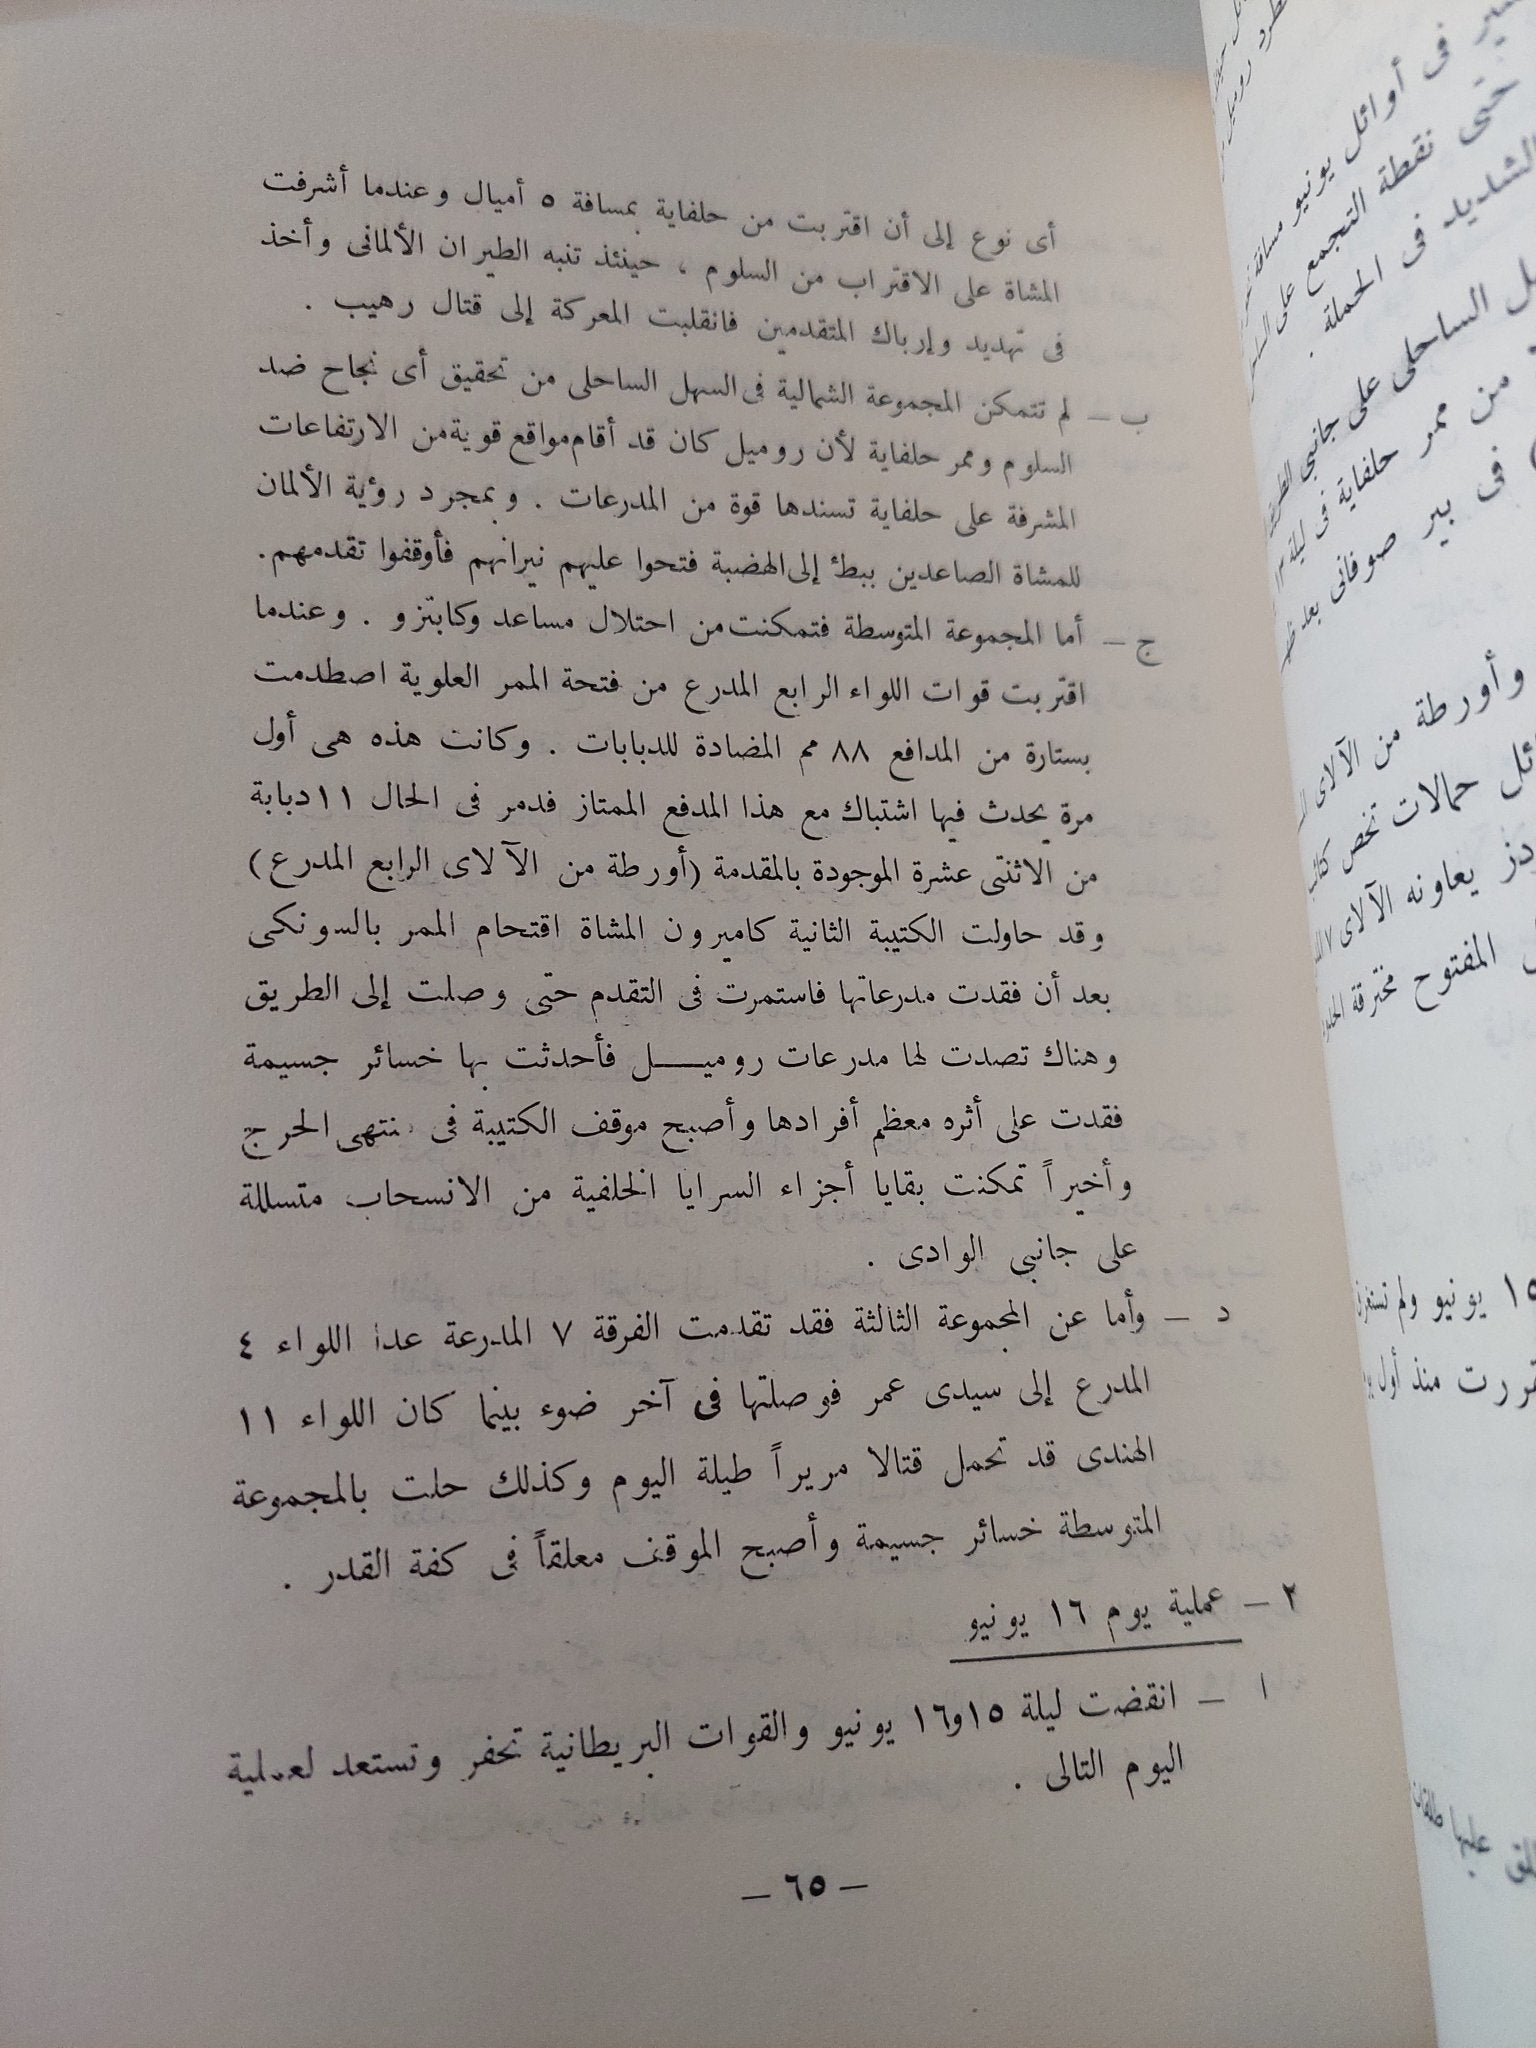 أى نوع إلى أن اقتربت من حلفاية بمسافة ٥ أميال وعندما أشرفت
المشاة على الاقتراب من السلوم ، حينئذ تنبه الطيران الألمانى وأخذ
فى تهديد وإرباك المتقدمين فانقلبت المعركة إلى قتال رهيب .
ب – لم تتمكن المجموعة الشمالية فى السهل الساحلى من تحقيق أى نجاح ضد
السلوم وممر حلفاية لأن روميل كان قد أقام مواقع قوية من الارتفاعات
المشرفة على حلفاية تسندها قوة من المدرعات . وبمجرد رؤية الألمان
للمشاة الصاعدين ببطئ إلى الهضبة فتحوا عليهم نيرانهم فأوقفوا تقدمهم.
ج – أما المجموعة المتوسطة فتمكنت من احتلال مساعد وكابتزو . وعندما
اقتربت قوات اللواء الرابع المدرع من فتحة الممر العلوية اصطدمت
بستارة من المدافع ٨٨ مم المضادة للدبابات . وكانت هذه هى أول
مرة يحدث فيها اشتباك مع هذا المدفع الممتاز فدمر فى الحال ١١ دبابة
من الاثنتى عشرة الموجودة بالمقدمة (أورطة من الآلاى الرابع المدرع)
وقد حاولت الكتيبة الثانية كاميرون المشاة اقتحام الممر بالسونكى
بعد أن فقدت مدرعاتها فاستمرت فى التقدم حتى وصلت إلى الطريق
وهناك تصدت لها مدرعات روميــــل فأحدثت بها خسائر جسيمة
فقدت على أثره معظم أفرادها وأصبح موقف الكتيبة فى منتهى الحرج
وأخيراً تمكنت بقايا أجزاء السرايا الخلفية من الانسحاب متسللة
على جانبى الوادى .
د – وأما عن المجموعة الثالثة فقد تقدمت الفرقة ٧ المدرعة عدا اللواء ٤
المدرع إلى سيدى عمر فوصلتها فى آخر ضوء بينما كان اللواء ١١
الهندى قد تحمل قتالا مريراً طيلة اليوم وكذلك حلت بالمجموعة
المتوسطة خسائر جسيمة وأصبح الموقف معلقاً فى كفة القدر .
٢ – عملية يوم ١٦ يونيو
ا – انقضت ليلة ١٥و١٦ يونيو والقوات البريطانية تحفر وتستعد لعملية
اليوم التالى .
– ٦٥ –
فى أوائل يونيو مسافة
حتى نقطة التجمع على
الشديد فى الحملة .
الساحلى على جانبى
من ممر حلفاية فى ليلة
فى بير صوفانى بعد
وأورطة من الآلاى
حمالات تخص
يعاونه الآلاى ٧
المفتوح مخترقة
١٥ يونيو ولم
منذ أول